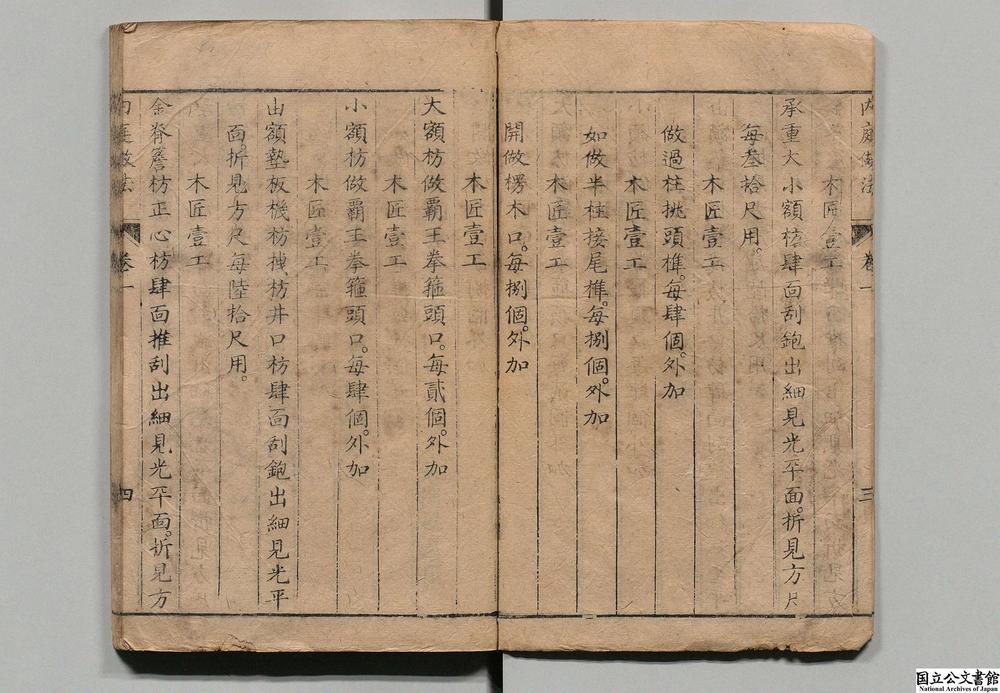 内庭做法 卷一 三
木匠壹工
承重大小額枋肆面刮鉋出細見光平面。折見方尺
每叁拾尺用。
木匠壹工
做過柱挑頭榫。每肆個。外加
木匠壹工
如做半柱接尾榫。每捌個。外加
木匠壹工
開做楞木口。每捌個。外加
木匠壹工
大額枋做霸王拳箍頭口。每貳個。外加
木匠壹工
小額枋做霸王拳箍頭口。每肆個。外加
木匠壹工
由額墊板機枋栈枋井口枋肆面刮鉋出細見光平
面。折見方尺每陸拾尺用。
木匠壹工
金脊簷枋正心枋肆面推刮出細見光平面。折見方
内庭做法 卷一 四
国立公文書館
National Archives of Japan